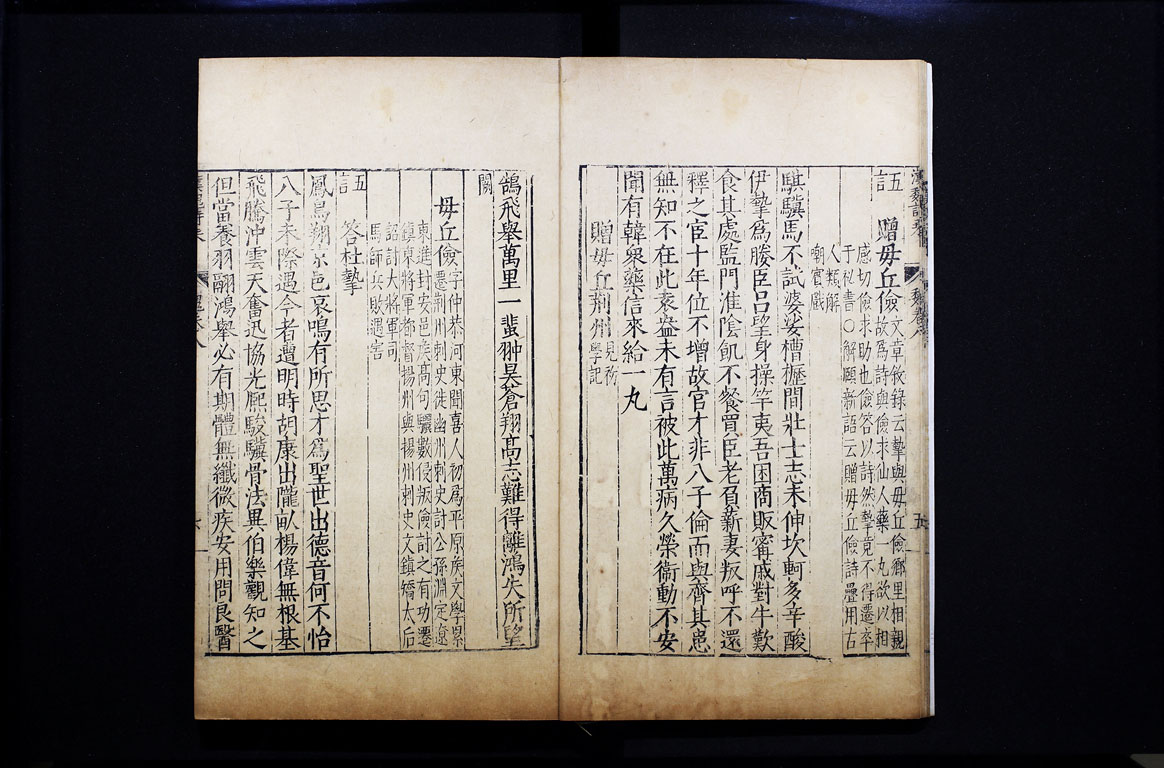 五言
贈毋丘儉
文章敘錄云摯與毋丘儉鄉里相親
故爲詩與儉求仙人藥一丸欲以相
感切儉求助也儉答以詩然摯竟不得遷卒
于秘書○解頤新語云贈毋丘儉詩疊用古
人類解
嘲賓戲
騏驥馬不試婆娑槽櫪間壯士志未伸坎軻多辛酸
伊摯爲媵臣呂望身操竿夷吾困商販甯戚對牛歎
食其處監門淮陰飢不餐買臣老負薪妻叛呼不還
釋之宦十年位不增故官才非八子倫而與齊其患
無知不在此袁盎未有言被此萬病久榮衞動不安
聞有韓衆藥信來給一丸
贈毋丘荆州
見初
學記
鵠飛舉萬里一蜚翀昊蒼翔高志難得離鴻失所望
闕
毋丘儉
字仲恭河東聞喜人初爲平原矦文學累
遷荆州刺史徙幽州刺史討公孫淵定遼
東進封安邑矦高句驪數侵叛儉討之有功遷
鎮東將軍都督揚州與揚州刺史文欽矯太后
詔討大將軍司
馬師兵敗遇害
五言
答杜摯
鳳鳥翔京邑哀鳴有所思才爲聖世出德音何不怡
八子未際遇今者遭明時胡康出隴畝楊偉無根基
飛騰沖雲天奮迅協光熙駿驥骨法異伯樂觀知之
但當養羽翮鴻舉必有期體無纖微疾安用問良醫